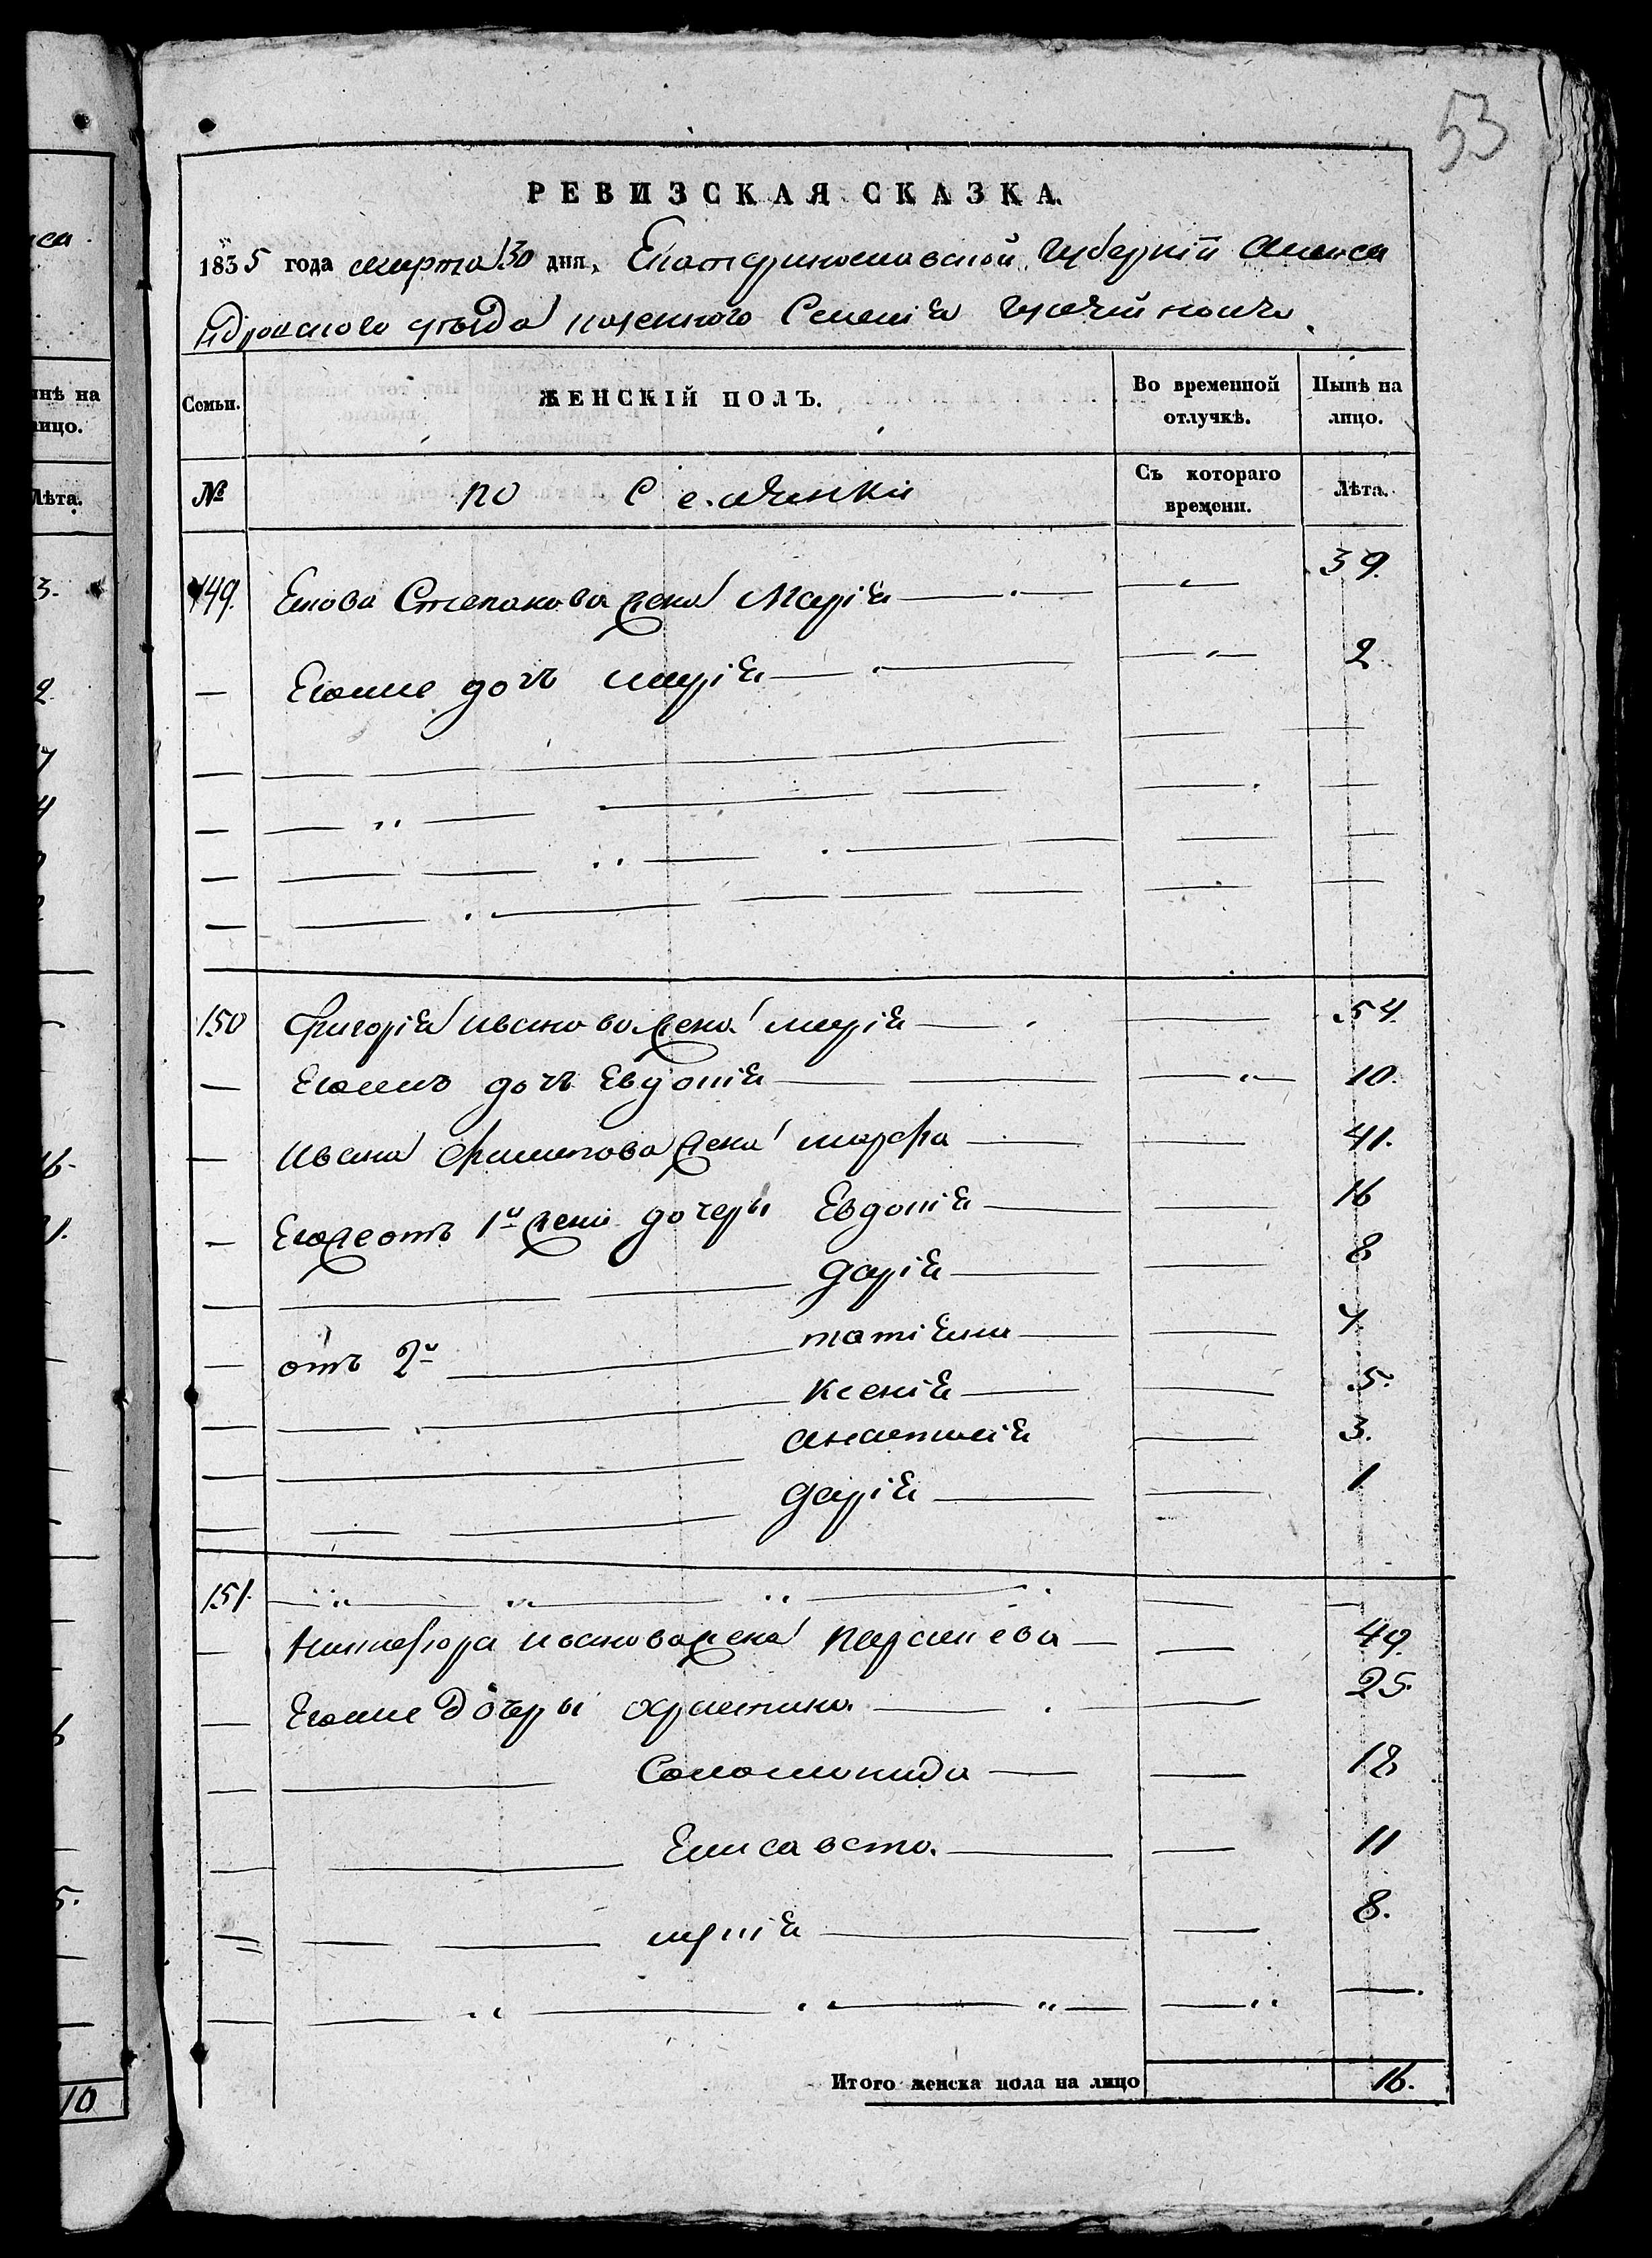 53
РЕВИЗСКАЯ СКАЗКА.
1835 года марта 30 дня, Екатеринославской Губернїи Алекса
ндровского уезда казенного Селенїя
Семьи.
ЖЕНСКІЙ ПОЛЪ.
Во временной отлучкѣ.
Нынѣ на лицо.
№
по
Съ котораго времени.
Лѣта.
149. Степанова жена Марія 39.
Егоже дочь марія 2
150 Григорія Иванова жена марія 54.
Егоже дочь Евдокія 10.
Ивана Филипова жена марфа 41.
Егоже отъ 1й жени дочеры Евдокія 16
дарія 8
отъ 2й татіяна 7.
Ксенія 5.
анастасія 3.
дарія 1
151.
Никифора иванова жена параскева 49.
Егоже дочеры христина 25.
Соломонида 18
Елисавета 11
марія 8.
Итого женска пола на лицо 16.
нѣ на
ицо.
Лѣта.
3.
2.
10